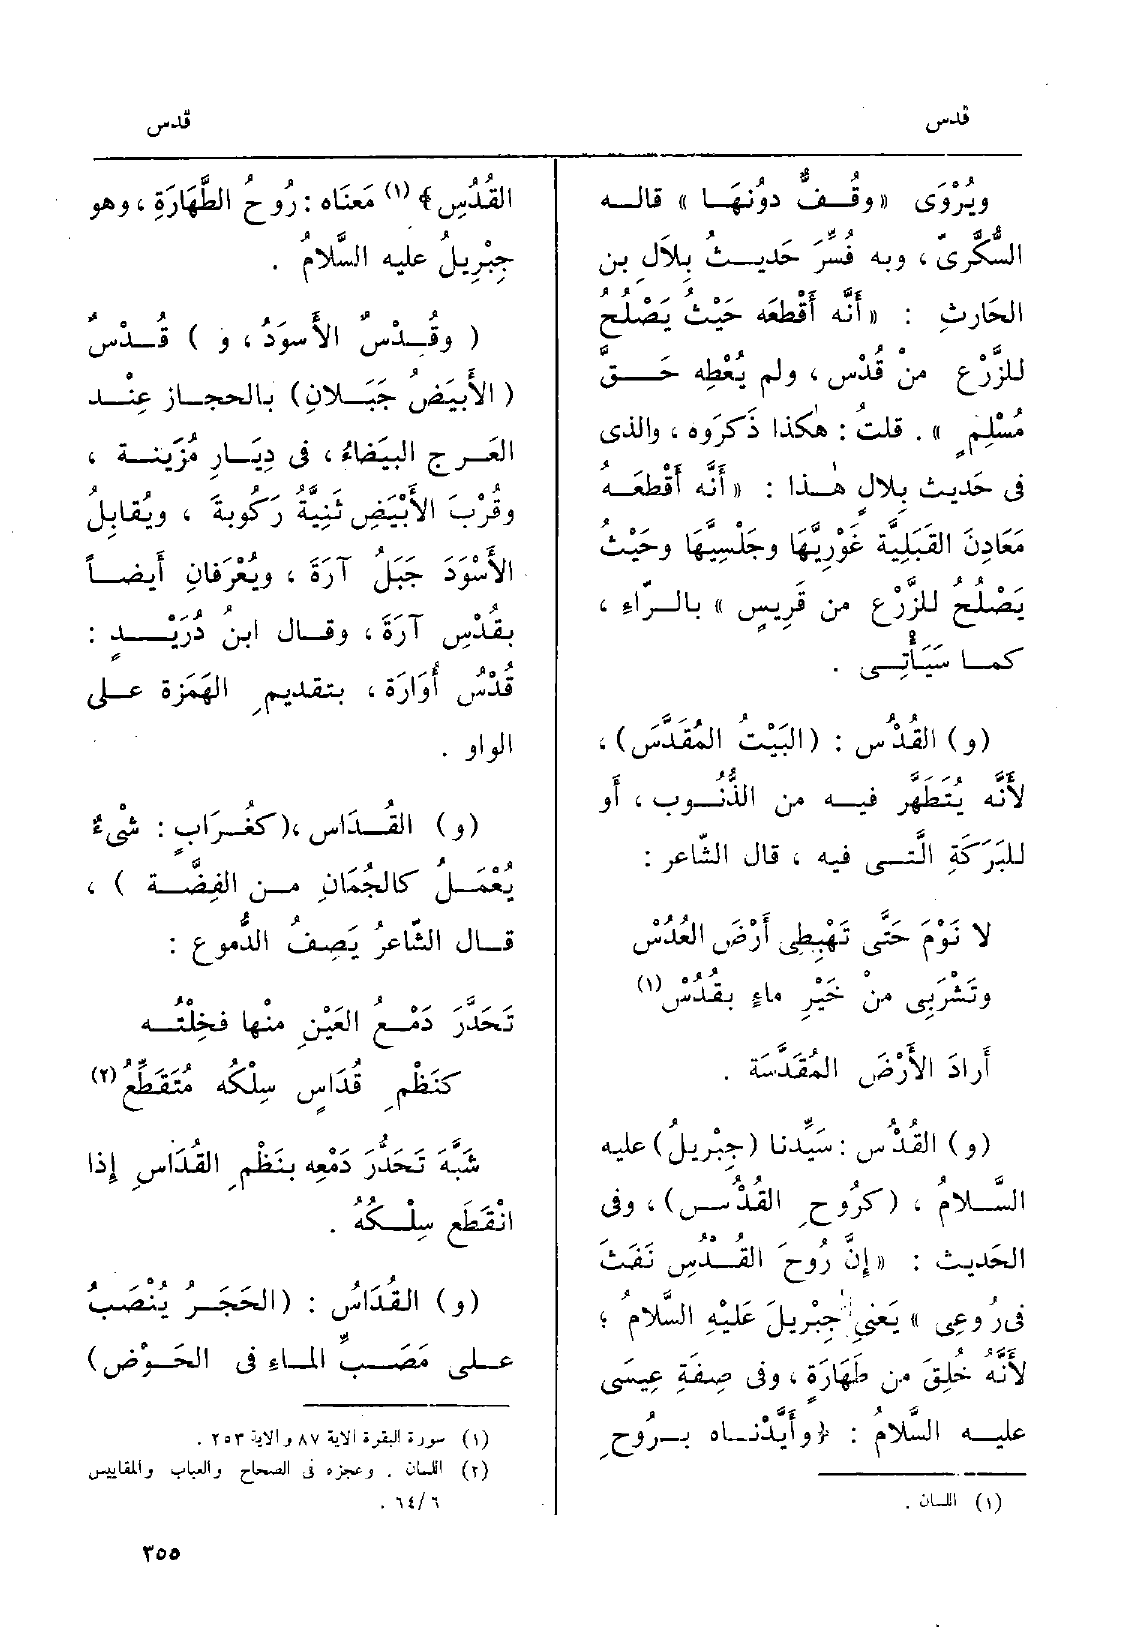 قدس
قدس
ويُرْوَى «وقُفٌّ دوُنَهَا» قاله
السُّكَّرىّ، وبه فُسِّرَ حَدِيثُ بِلَالِ بن
الحَارثِ : «أَنَّه أَقْطعَه حَيْثُ يَصْلُحُ
للزَّرْعِ منْ قُدْس، ولم يُعْطِه حَقَّ
مُسْلِمٍ». قلتُ : هٰكذا ذَكَرَوه، والذى
فى حَدِيث بِلالٍ هٰذا : «أَنَّه أَقْطعَه
مَعَادِنَ القَبَلِيَّة غَوْرِيَّهَا وجَلْسِيَّهَا وحَيْثُ
يَصْلُحُ للزَّرْعِ من قَرِيسٍ» بالرّاءِ،
كما سَيَأْتِى .
(و) القُدْس : (البَيْتُ المُقَدَّس)،
لأَنَّه يُتَطَهَّر فيه من الذُّنُوب، أَو
للبَرَكَةِ الَّتى فيه، قال الشّاعر :
لا نَوْمَ حَتَّى تَهْبِطِى أَرْضَ العُدُسْ
وتَشْرَبِى منْ خَيْرِ ماءٍ بقُدُسْ (١)
أَرادَ الأَرْضَ المُقَدَّسَة .
(و) القُدْس : سَيِّدنا (جِبْرِيلُ) عليه
السَّلامُ، (كرُوحِ القُدُس)، وفى
الحَديث : «إِنَّ رُوحَ القُدُسِ نَفَثَ
فى رُوعِى» يَعْنِى جِبْرِيلَ عَلَيْهِ السَّلَامُ؛
لأَنَّهُ خُلِقَ من طَهَارَةٍ، وفى صِفَةِ عِيسَى
عليه السَّلامُ : ﴿وأَيَّدْنَاه برُوحِ
(١) اللسان .
القُدُسِ﴾ (١) مَعنَاه : رُوحُ الطَّهَارَةِ، وهو
جِبْرِيلُ عليه السَّلَامُ .
( وقُدْسٌ الأَسوَدُ، و ) قُدْسٌ
( الأَبيَضُ جَبَلانِ) بالحجاز عِنْد
العَرج البَيضَاءُ، فى دِيَارِ مُزَينة،
وقُرْبَ الأَبْيَضِ ثَنِيَّةُ رَكُوبةَ، ويُقَابلُ
الأَسْوَدَ جَبَلُ آرَةَ، ويُعْرَفانِ أَيضاً
بقُدْسِ آرَةَ، وقال ابنُ دُرَيْدٍ :
قُدْسُ أُوَارَةَ، بتقديمِ الهَمَزة على
الواو .
(و) القُدَاس ،(كغُرَابٍ : شىْءٌ
يُعْمَلُ كالجُمَانِ من الفِضَّة )،
قال الشّاعرُ يَصِفُ الدُّموع :
تَحَدَّرَ دَمْعُ العَيْنِ منْها فخِلْتُه
كنَظْمِ قُدَاسٍ سِلْكُه مُتَقَطِّعُ (٢)
شَبَّهَ تَحَدُّرَ دَمْعِه بنَظْمِ القُدَاسِ إِذا
انْقَطَع سِلْكُهُ .
(و) القُدَاسُ : (الحَجَرُ يُنْصَبُ
على مَصَبِّ الماء فى الحَوْض)
(١) سورة البقرة الآية ٨٧ والآية ٢٥٣ .
(٢) اللسان . وعجزه فى الصحاح والعباب والمقاييس
٦٤/٦ .
٣٥٥